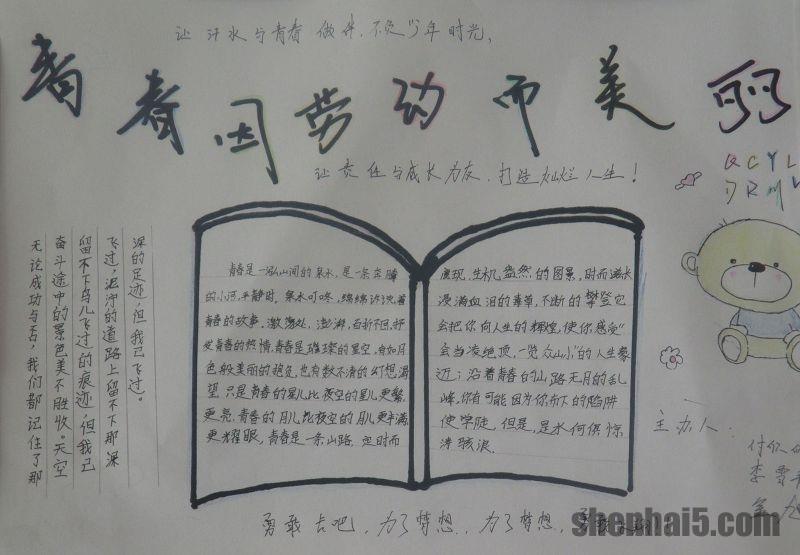 让汗水与青春做伴，不负少年时光，
青春因劳动而美丽
让责任与成长为友，打造灿烂人生！
QCYL
无论成功与否，我们都记住了那
奋斗途中的景色美不胜收。天空
留不下鸟儿飞过的痕迹，但我已
飞过，泥泞的道路上留不下那深
深的足迹，但我已飞过。
青春是一泓山涧的泉水，是一条奔腾
的小河，平静时，泉水叮咚，绵绵诉说着
青春的故事。激荡处，澎湃，百折不回，抒
发青春的热情，青春是璀璨的星空，有如月
色般美丽的绝色，也有数不清的幻想渴
望，只是青春的星儿比夜空的星儿更繁，
更亮，青春的月儿比夜空的月儿更丰满，
更耀眼，青春是一条山路，它时而
展现，生机盎然的图景，时而滋长
浸满血泪的青草，不断的攀登它
会把你向人生的辉煌，使你感受“
会当凌绝顶，一览众山小”的人生豪
迈；沿着青春的山路无月的乱
峰，你有可能因为布下的陷阱
使学陡，但是，是水何惧惊
涛骇浪。
主办人：
李雪
勇敢去吧，为了梦想，为了梦想，勇敢
shenhai5.com